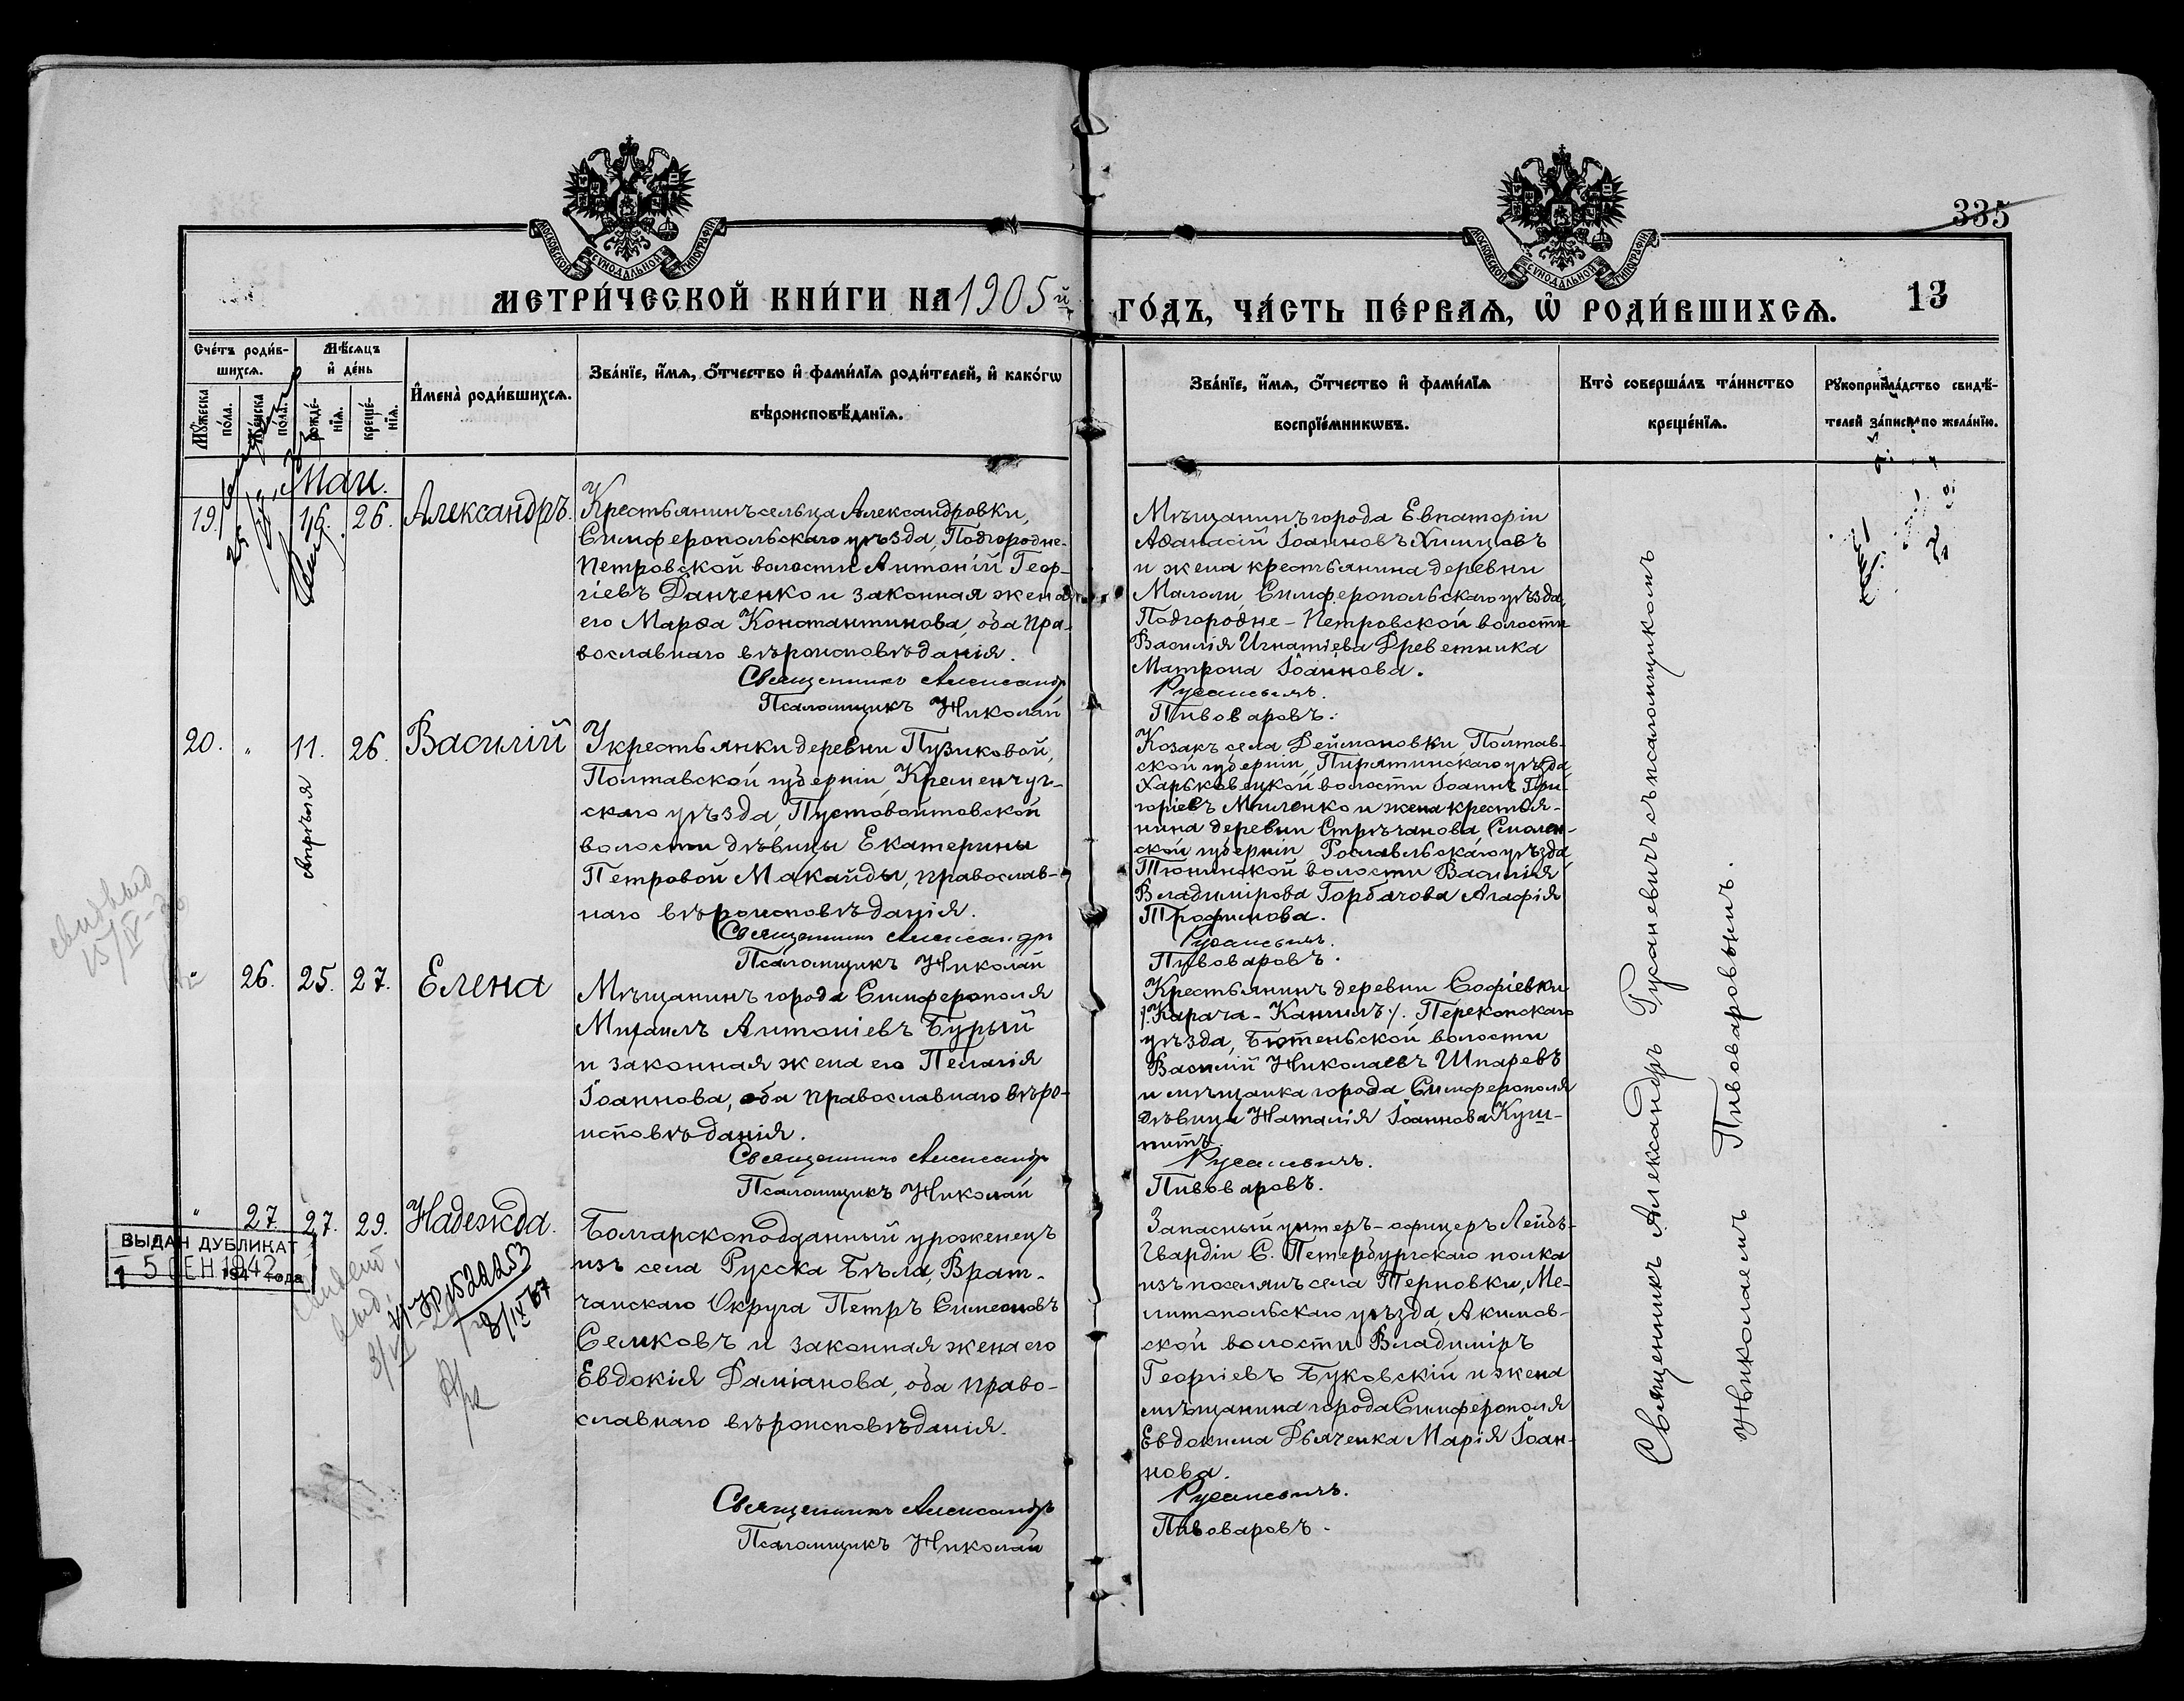 335
МОСКОВСКОЙ СѴНОДАЛЬНОЙ ТИПОГРАФІИ
МОСКОВСКОЙ СѴНОДАЛЬНОЙ ТИПОГРАФІИ
МЕТРИ́ЧЕСКОЙ КНИ́ГИ НА 1905й
ГО́ДЪ, ЧА́СТЬ ПЕ́РВАѦ, Ѡ҆ РОДИ́ВШИХСѦ.
13
Сче́тъ роди́в-
шихсѧ.
Мꙋ́жеска по́ла.
Же́нска по́ла.
Мѣ́сѧцъ и҆ де́нь
рожде́-нїѧ.
креще́-нїѧ.
И҆мена̀ роди́вшихсѧ.
Зва́нїе, и҆́мѧ, ѻ҆́тчество и҆ фами́лїѧ роди́телей, и҆ како́гѡ
вѣроисповѣ́данїѧ.
Зва́нїе, и҆́мѧ, ѻ҆́тчество и҆ фами́лїѧ
воспрїе́мникѡвъ.
Кто̀ соверша́лъ та́инство
креще́нїѧ.
Рꙋкоприкла́дство свидѣ́-
телей за́писи по жела́нїю.
Маи.
19.
16.
26.
Александръ.
Крестьянинъ сельца Александровки,
Симферопольскаго уѣзда, Подгородне-
Петровской волости Антоній Геор-
гіевъ Данченко и законная жена
его Марѳа Константинова, оба пра-
вославнаго вѣроисповѣданія.
Священникъ Александр
Псаломщикъ Николай
Мѣщанинъ города Евпаторіи
Аѳанасій Іоанновъ Химцовъ
и жена крестьянина деревни
Мамли, Симферопольскаго уѣзда,
Подгородне-Петровской волости
Василія Игнатіева Древетника
Матрона Іоаннова.
Русаневичъ.
Пивоваровъ.
20.
"
11.
апрѣля
26.
Василій
У крестьянки деревни Пузиковой,
Полтавской губерніи, Кременчуг-
скаго уѣзда, Пустовойтовской
волости дѣвицы Екатерины
Петровой Макайды, православ-
наго вѣроисповѣданія.
Священникъ Александръ
Псаломщикъ Николай
Козакъ села Деймоновки, Полтав-
ской губерніи, Пирятинскаго уѣзда,
Харьковецкой волости Іоаннъ Гри-
горіевъ Миленко и жена крестья-
нина деревни Стрѣчанова, Смолен-
ской губерніи Рославльскаго уѣзда,
Тюнинской волости Василія
Владимірова Горбачова Агафія
Трофимова.
Русаневичъ.
Пивоваровъ.
"
26.
25.
27.
Елена
Мѣщанинъ города Симферополя
Михаилъ Антоніевъ Бурый
и законная жена его Пелагія
Іоаннова, оба православнаго вѣро-
исповѣданія.
Священникъ Александръ
Псаломщикъ Николай
Крестьянинъ деревни Софіевки
/:Карача-Кангилъ:/. Перекопскаго
уѣзда, Бютеньской волости
Василій Николаевъ Шпаревъ
и мѣщанка города Симферополя
дѣвица Наталія Іоаннова Куш-
нитъ.
Русаневичъ.
Пивоваровъ.
"
27.
27.
29.
Надежда.
Болгарскоподданный уроженецъ
изъ села Русска Бѣла, Врат-
чанскаго Округа Петръ Симеоновъ
Семковъ и законная жена его
Евдокія Даміанова, оба право-
славнаго вѣроисповѣданія.
Священникъ Александръ
Псаломщикъ Николай
Запасный унтеръ-офицеръ Лейбъ-
Гвардіи С. Петербургскаго полка
изъ поселянъ села Терновки, Ме-
литопольскаго уѣзда, Акимов-
ской волости Владиміръ
Георгіевъ Буковскій и жена
мѣщанина города Симферополя
Евдокима Дьяченка Марія Іоан-
нова.
Русаневичъ.
Пивоваровъ.
Священникъ Александръ Русаневичъ съ псаломщикомъ
Николаемъ Пивоваровымъ.
ВЫДАН ДУБЛИКАТ
15 СЕН 1942 года
15/IV-